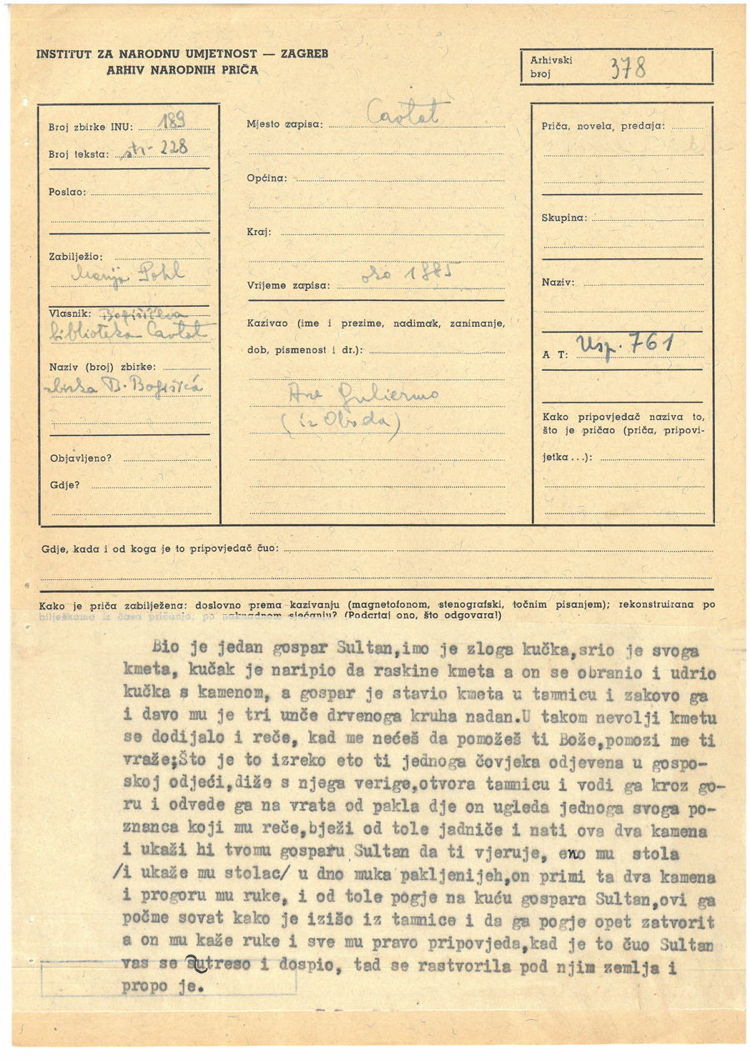 INSTITUT ZA NARODNU UMJETNOST — ZAGREB
ARHIV NARODNIH PRIČA
Arhivski
broj 378
Broj zbirke INU: 189
Broj teksta: str. 228
Poslao:
Zabilježio:
Marija Pohl
Vlasnik: Bogišićeva
biblioteka Cavtat
Naziv (broj) zbirke:
zbirka B. Bogišića
Objavljeno?
Gdje?
Mjesto zapisa: Cavtat
Općina:
Kraj:
Vrijeme zapisa: oko 1885
Kazivao (ime i prezime, nadimak, zanimanje,
dob, pismenost i dr.):
Ane Guliermo
(iz Oboda)
Priča, novela, predaja:
Skupina:
Naziv:
A T: Usp. 761
Kako pripovjedač naziva to,
što je pričao (priča, pripovi-
jetka...):
Gdje, kada i od koga je to pripovjedač čuo:
Kako je priča zabilježena: doslovno prema kazivanju (magnetofonom, stenografski, točnim pisanjem); rekonstruirana po
bilješkama iz časa pričanja, po naknadnom sjećanju? (Podcrtaj ono, što odgovara!)
Bio je jedan gospar Sultan,imo je zloga kučka,srio je svoga
kmeta, kučak je naripio da raskine kmeta a on se obranio i udrio
kučka s kamenom, a gospar je stavio kmeta u tamnicu i zakovo ga
i davo mu je tri unče drvenoga kruha nadan.U takom nevolji kmetu
se dodijalo i reče, kad me nećeš da pomožeš ti Bože,pomozi me ti
vraže;Što je to izreko eto ti jednoga čovjeka odjevena u gospo-
skoj odjeći,diže s njega verige,otvora tamnicu i vodi ga kroz go-
ru i odvede ga na vrata od pakla dje on ugleda jednoga svoga po-
znanca koji mu reče,bježi od tole jadniče i nati ova dva kamena
i ukaži hi tvomu gosparu Sultan da ti vjeruje, eno mu stola
/i ukaže mu stolac/ u dno muka pakljenijeh,on primi ta dva kamena
i progoru mu ruke, i od tole pogje na kuću gospara Sultan,ovi ga
počme sovat kako je izišo iz tamnice i da ga pogje opet zatvorit
a on mu kaže ruke i sve mu pravo pripovjeda,kad je to čuo Sultan
vas se sutreso i dospio, tad se rastvorila pod njim zemlja i
propo je.